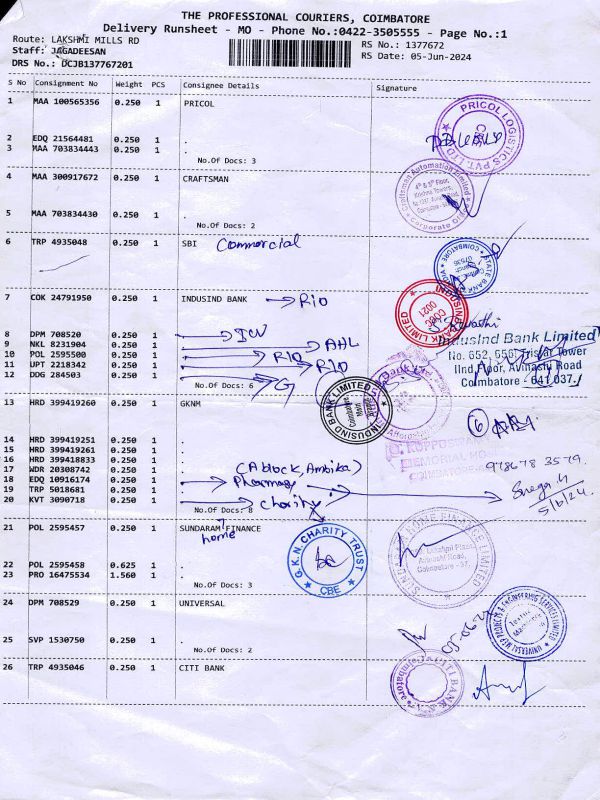 THE PROFESSIONAL COURIERS, COIMBATORE
Delivery Runsheet - MO - Phone No.:0422-3505555 - Page No.:1
Route: LAKSHMI MILLS RD
Staff: JAGADEESAN
DRS No.: DCJB137767201
RS No.: 1377672
RS Date: 05-Jun-2024
S No Consignment No Weight PCS Consignee Details Signature
1 MAA 100565356 0.250 1 PRICOL
PRICOL LOGISTICS PVT. LTD.
2 EDQ 21564481 0.250 1 .
3 MAA 703834443 0.250 1 .
No.Of Docs: 3
4 MAA 300917672 0.250 1 CRAFTSMAN
Craftsman Automation Limited
5 MAA 703834430 0.250 1 .
No.Of Docs: 2
6 TRP 4935048 0.250 1 SBI Commercial
STATE BANK
COIMBATORE
7 COK 24791950 0.250 1 INDUSIND BANK RIO
INDUSIND BANK LIMITED
0021
IndusInd Bank Limited
No. 652, 656, Tristar Tower
IInd, Floor, Avinashi Road
Coimbatore - 641 037.
8 DPM 708520 0.250 1 .
9 NKL 8231904 0.250 1 . AHL
10 POL 2595500 0.250 1 . RIO
11 UPT 2218342 0.250 1 . RIO
12 DDG 284503 0.250 1 .
No.Of Docs: 6
INDUSIND BANK LIMITED
13 HRD 399419260 0.250 1 GKNM
14 HRD 399419251 0.250 1 .
15 HRD 399419261 0.250 1 .
16 HRD 399418833 0.250 1 .
17 WDR 20308742 0.250 1 . (A block, Ambika)
18 EDQ 10916174 0.250 1 . Pharmacy
19 TRP 5018681 0.250 1 .
20 KVT 3090718 0.250 1 . charity
No.Of Docs: 8
5/6/24
21 POL 2595457 0.250 1 SUNDARAM FINANCE
home
G.K.N CHARITY TRUST
CBE
22 POL 2595458 0.625 1 .
23 PRO 16475534 1.560 1 .
No.Of Docs: 3
24 DPM 708529 0.250 1 UNIVERSAL
25 SVP 1530750 0.250 1 .
No.Of Docs: 2
26 TRP 4935046 0.250 1 CITI BANK
CITIBANK